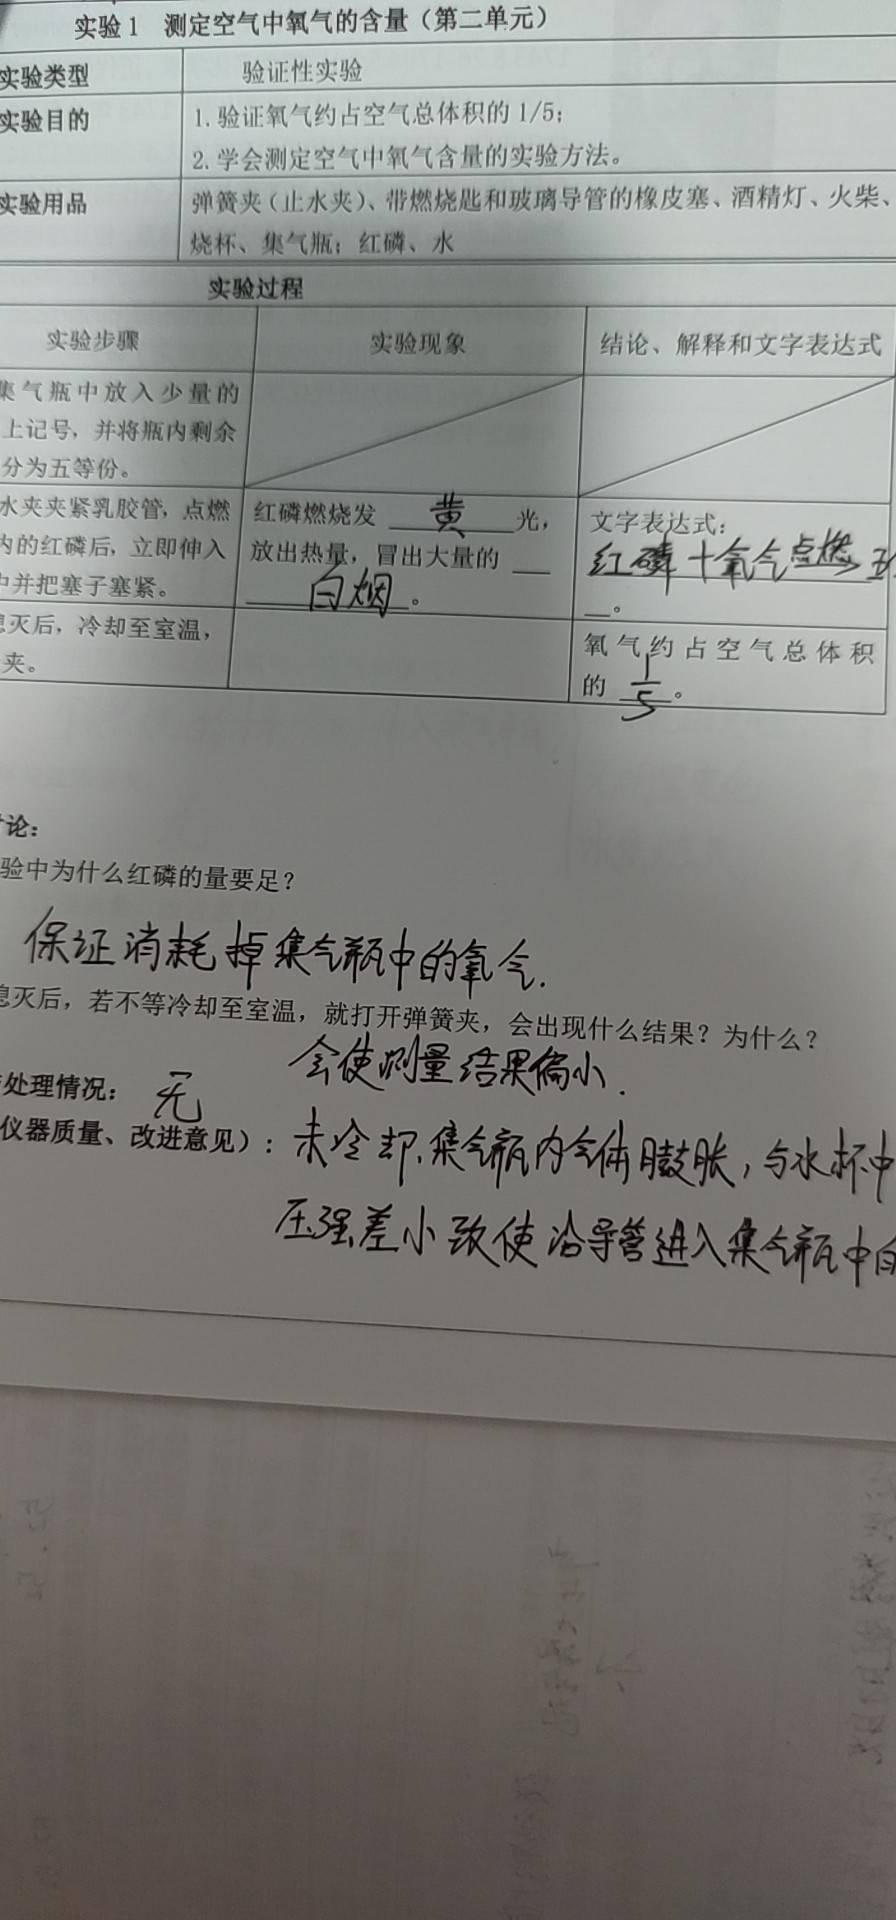 实验1 测定空气中氧气的含量（第二单元）
实验类型 验证性实验
实验目的 1.验证氧气约占空气总体积的1/5；
2.学会测定空气中氧气含量的实验方法。
实验用品 弹簧夹（止水夹）、带燃烧匙和玻璃导管的橡皮塞、酒精灯、火柴、
烧杯、集气瓶；红磷、水
实验过程
实验步骤 实验现象 结论、解释和文字表达式
集气瓶中放入少量的
上记号，并将瓶内剩余
分为五等份。
水夹夹紧乳胶管，点燃 红磷燃烧发 黄 光， 文字表达式：
内的红磷后，立即伸入 放出热量，冒出大量的 红磷+氧气点燃→五
中并把塞子塞紧。 白烟。 。
熄灭后，冷却至室温， 氧气约占空气总体积
夹。 的 1/5 。
讨论：
验中为什么红磷的量要足？
保证消耗掉集气瓶中的氧气.
熄灭后，若不等冷却至室温，就打开弹簧夹，会出现什么结果？为什么？
会使测量结果偏小.
处理情况： 无
仪器质量、改进意见）： 未冷却.集气瓶内气体膨胀，与水杯中
压强差小致使沿导管进入集气瓶中的